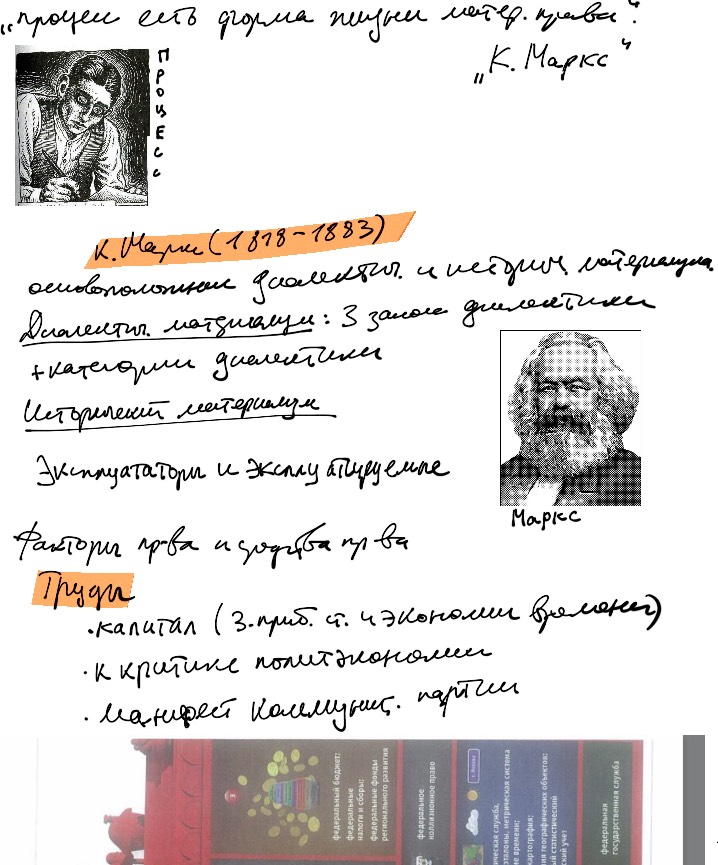 „процесс есть форма жизни матер. права".
„К. Маркс"
ПРОЦЕСС
К. Маркс (1818-1883)
основоположник диалектич. и историч. материализма
Диалектич. материализм: 3 закона диалектики
+ категории диалектики
Исторический материализм
Эксплуататоры и эксплуатируемые
Маркс
Факторы пр-ва и средства пр-ва
Труды
• капитал (З. приб. ст. и экономии времени)
• к критике политэкономии
• манифест коммунист. партии
федеральный бюджет;
федеральные
налоги и сборы;
федеральные фонды
регионального развития
федеральное
коллизионное право
ческая служба,
эталоны, метрическая система
времени;
картография;
географических объектов;
статистический
учет
федеральная
государственная служба